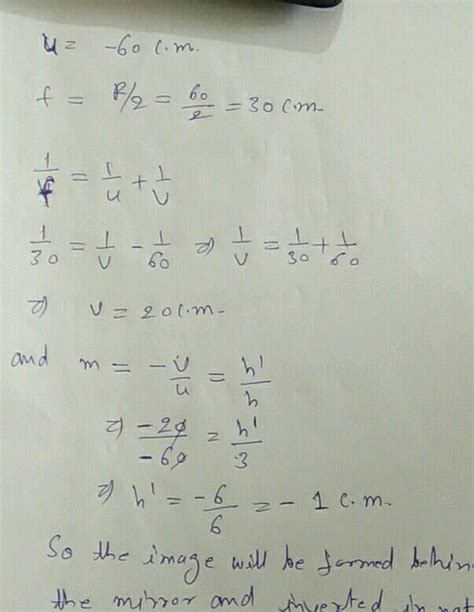 u = -60 c.m.
f = R/2 = 60/2 = 30 c.m
1/f = 1/u + 1/v
1/30 = 1/v - 1/60 ⇒ 1/v = 1/30 + 1/60
⇒ v = 20 c.m.
and m = -v/u = h'/h
⇒ -20/-60 = h'/3
⇒ h' = -6/6 = - 1 c.m.
So the image will be formed behin
the mirror and inverted in nat